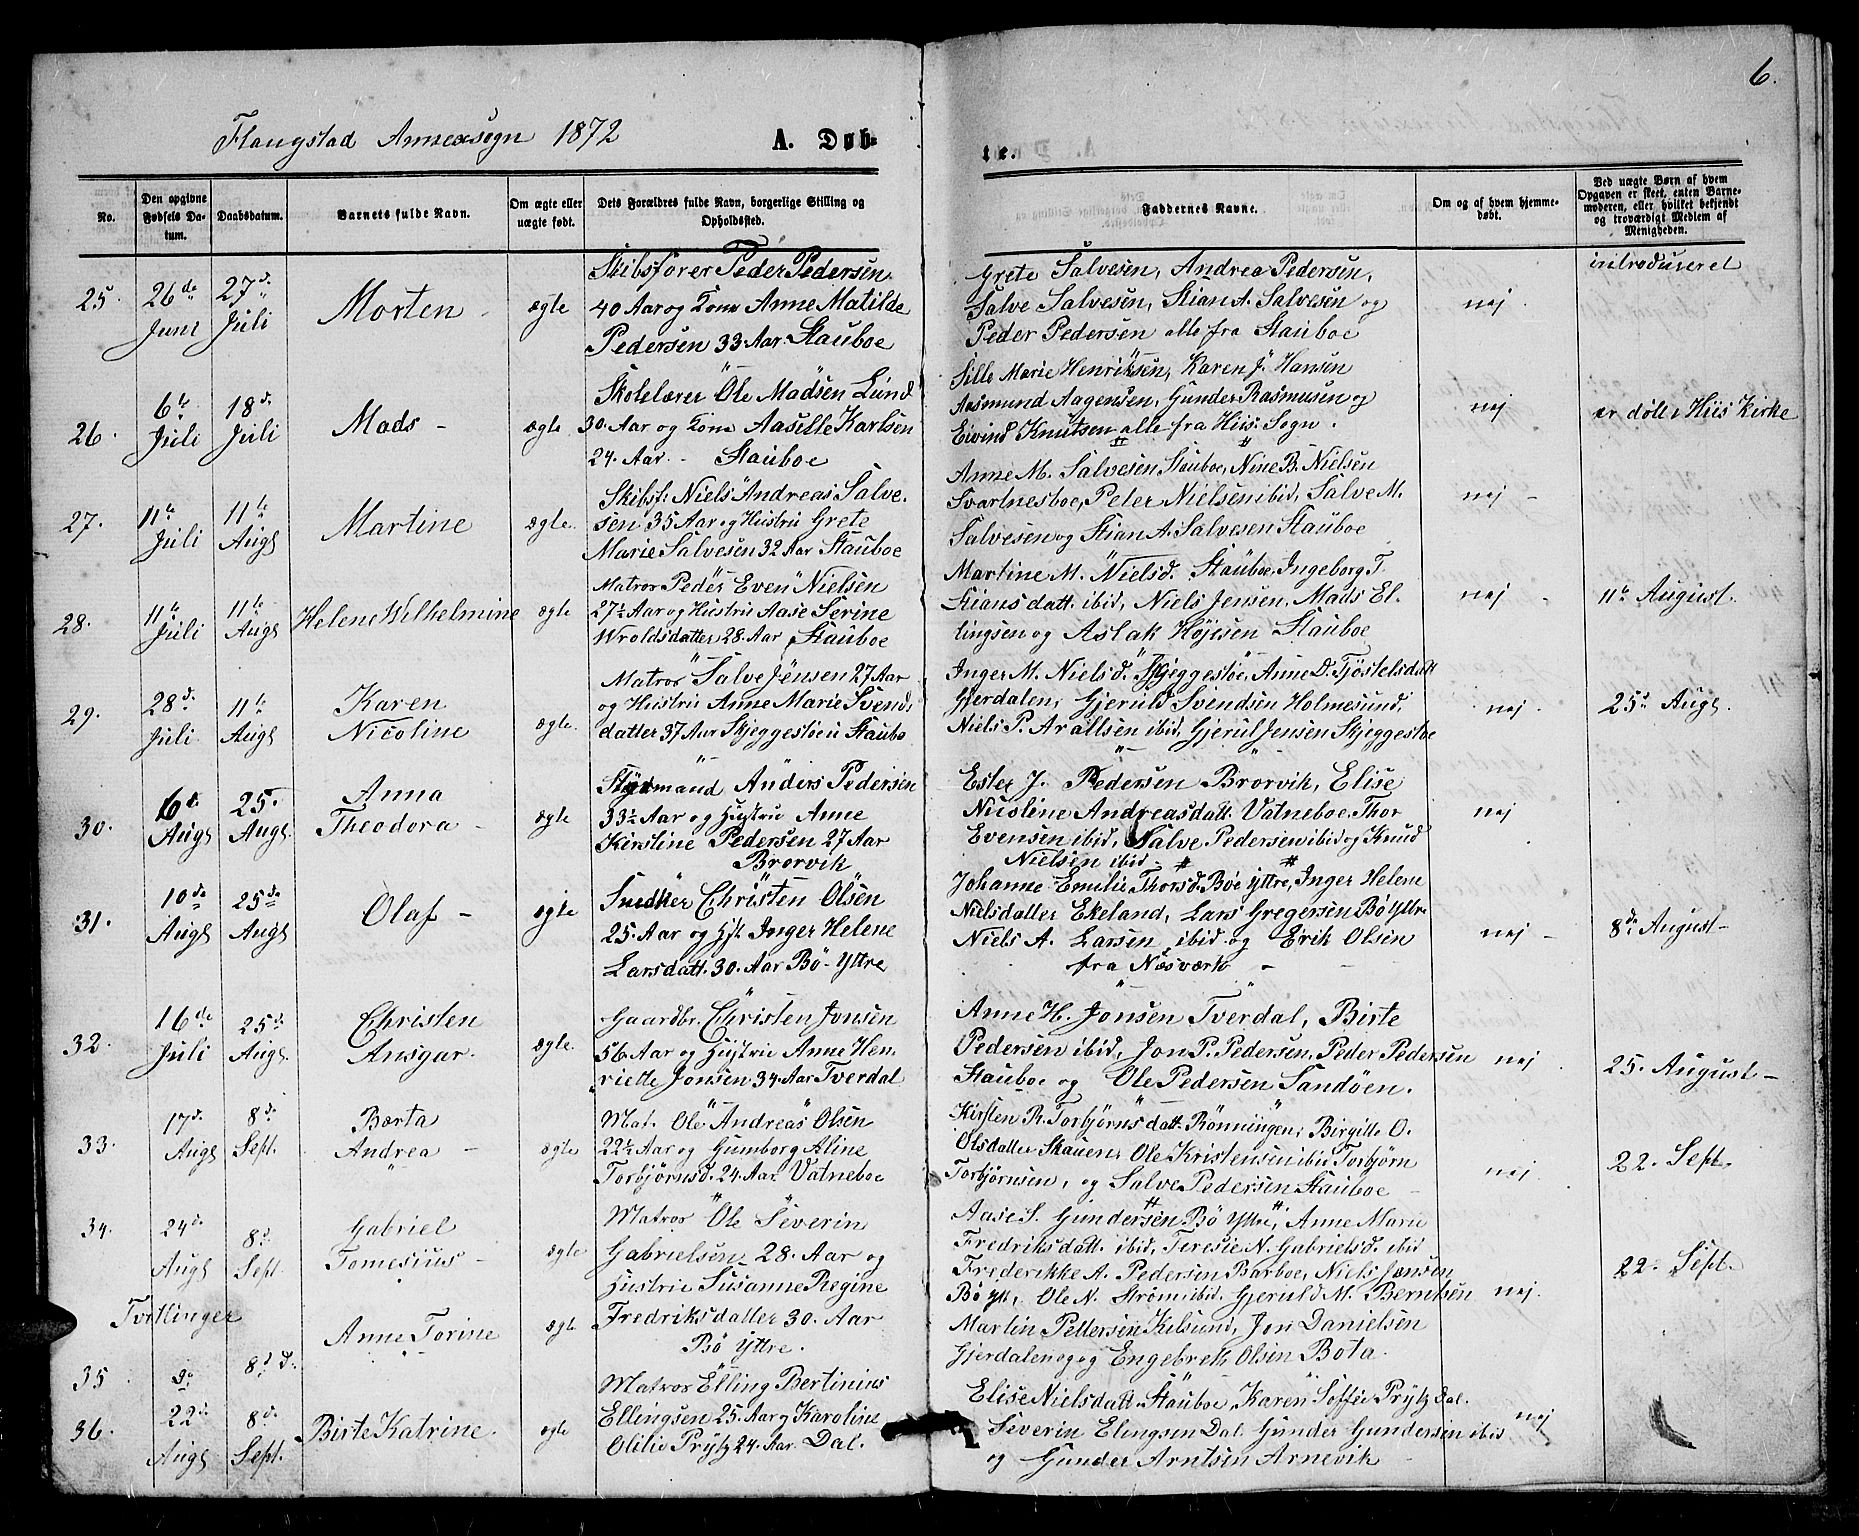 6.
Flangstad Annexsogn 1872
A. Døb-
te.
No.
Den opgivne Fødsels Da-tum.
Daabsdatum.
Barnets fulde Navn.
Om ægte eller uægte født.
Dets Forældres fulde Navn, borgerlige Stilling og Opholdssted.
Faddernes Navne.
Om og af hvem hjemme-døbt.
Ved uægte Børn af hvem Opgaven er skeet, enten Barne-moderen, eller hvilket bekjendt og troværdigt Medlem af Menigheden.
25.
26de Juni
27d. Juli
Morten
ægte
Skibsfører Peder Pedersen
40 Aar og Kone Anne Matilde
Pedersen 33 Aar. Stauboe
Grete Salvesen, Andrea Pedersen,
Salve Salvesen, Stian A. Salvesen og
Peder Pedersen alle fra Stauboe
nej
introduseret
26.
6te Juli
18d. Juli
Mads -
ægte
Skolelærer Ole Madsen Lund
30. Aar og Kone Aasille Karlsen
24. Aar - Stauboe
Sille Marie Henriksen, Karen J. Hansen
Aasmund Aagensen, Gunder Rasmusen og
Eivind Knutsen alle fra Hiis. Sogn.
nej
er døbt i Hiis Kirke
27.
11te Juli
11te Augs
Martine
ægte.
Skibsf. Niels Andreas Salve-
sen 35 Aar og Hustru Grete
Marie Salvesen 32 Aar Stauboe
Anne M. Salvesen Stauboe, Nine B. Nielsen
Svartnesboe, Peter Nielsen ibid, Salve M.
Salvesen og Stian A. Salvesen Stauboe
nej -
28.
11te Juli
11te Augs
Helene Wilhelmine
ægte
Matros Peder Even Nielsen
27½ Aar og Hustru Aase Serine
Wroldsdatter 28. Aar Stauboe
Martine M. Nielsd. Stauboe, Ingeborg T.
Stiansdatt. ibid, Niels Jensen, Mads El-
lingsen og Aslak Höjesen Stauboe
nej -
11te August.
29.
28d. Juli
11te Augs
Karen
Nicoline
ægte.
Matros Salve Jensen 27 Aar
og Hustru Anne Marie Svends
datter 37 Aar Skjeggestöe i Staubo
Inger M. Nielsd. Skjeggestøe, Anne D. Tjöstelsdatt
Gjerdalen, Gjeruld Svendsen Holmesund,
Niels P. Arallsen ibid, Gjerul Jensen Skjeggestoe
nej.
25d Augs.
30.
6t. Augs
25. Augs
Anna
Theodora -
ægte
Styrmand Anders Pedersen
33½ Aar og Hustru Anne
Kirstine Pedersen 27 Aar
Brorvik
Ester J. Pedersen Brørvik, Elise
Nicoline Andreasdatt. Vatneboe, Thor
Evensen ibid, Salve Pedersen ibid og Knud
Nielsen ibid.
nej
31.
10de Augs
25de Augs
Olaf -
ægte
Snedker Christen Olsen
25. Aar og Hst. Inger Helene
Larsdatt. 30. Aar Bö-Yttre
Johanne Emilie Thorsd. Böe Yttre, Inger Helene
Nielsdatter Ekeland, Lars Gregersen Bö Yttre
Niels A. Larsen ibid og Erik Olsen
fra Næsværk -
nej -
8de August -
32.
16de Juli
25de Augs.
Christen
Ansgar.
ægte.
Gaardbr. Christen Jonsen
56 Aar og Hustru Anne Hen-
riette Jonsen 34 Aar Tverdal
Anne H. Jonsen Tverdal, Birte
Pedersen ibid, Jon P. Pedersen, Peder Pedersen
Stauboe og Ole Pedersen Sandöen.
nej
25. August -
33.
17d. Augs
8d. Sept.
Bærta
Andrea -
ægte
Mat. Ole Andreas Olsen
22½ Aar og Gumborg Aline
Torbjörnsd. 24 Aar. Vatneboe
Kirsten R. Torbjörnsdatt. Rönningen, Birgitte O.
Olsdatter Skauen, Ole Kristensen ibid Torbjörn
Torbjörnsen, og Salve Pedersen Stauboe
nej
22. Sept.
34.
24d. Augs
8d. Sept.
Gabriel
Tomesius -
ægte
Matros Ole Severin
Gabrielsen 28. Aar og
Hustru Susanne Regine
Fredriksdatter 30. Aar
Bö Yttre.
Aase S. Gundersen Bö Yttre, Anne Marie
Fredriksdatt. ibid, Teresie N. Gabrielsd. ibid
Frederikke A. Pedersen Barboe, Niels Jensen
Bö Ytt, Ole N. Ström ibid, Gjeruld M. Berntsen
Martin Pettersen Kilsund, Jon Danielsen
Gjerdalen og og Engebrek Olsen Bota.
nej.
22. Sept.
Tvillinger
35
Do
8d D.
Anne Torine
ægte
36.
22d Augs
8d. Sept.
Birte Katrine.
ægte
Matros Elling Bertinius
Ellingsen 25 Aar og Karoline
Otilie Prytz 24 Aar. Dal.
Elise Nielsdatt. Stauboe, Karen Soffie Prytz Dal.
Severin Elingsen Dal. Gunder Gundersen ibid
og Gunder Arntsen Arnevik
nej